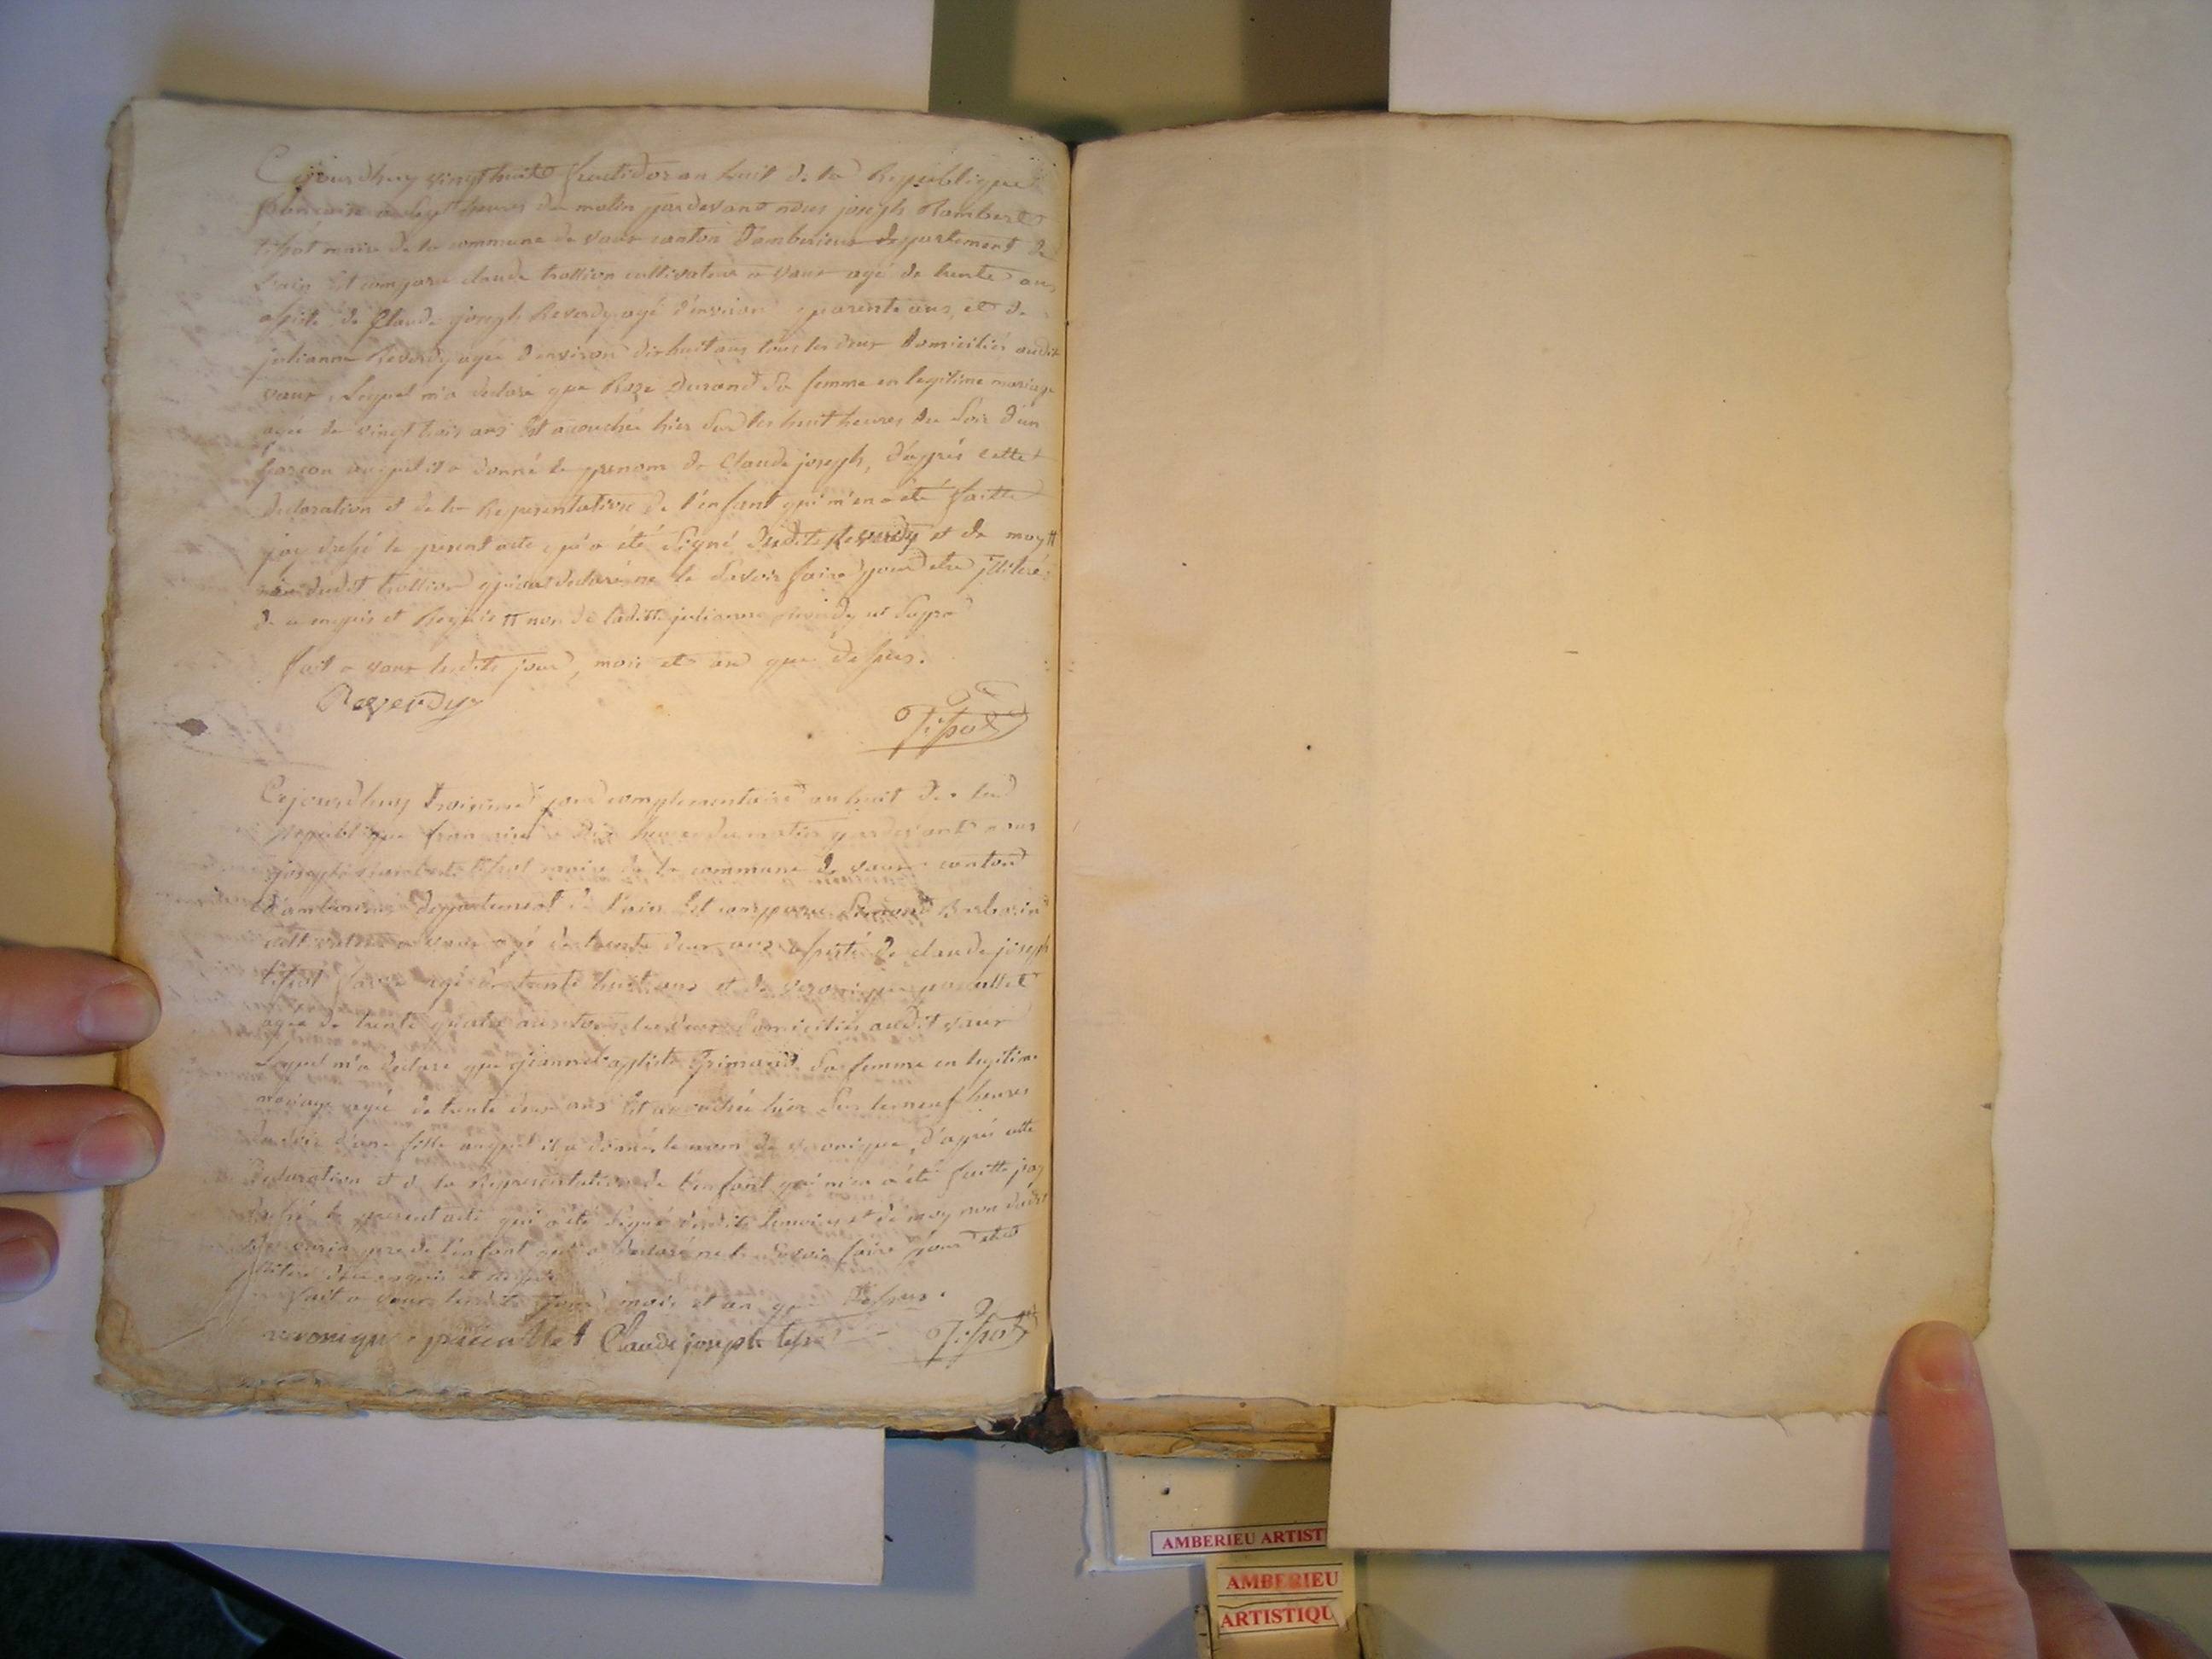 Cejourdhuy vingt huit fructidor an huit de la Republique
francaise a sept heures du matin pardevant nous joseph Rambert
tissot maire de la commune de vaux canton d'amberieux departement de
l'ain Est comparu claude trollion cultivateur a vaux agé de trente ans
assisté de Claude joseph Reverdy agé d'environ quarente ans, et de
julianne Reverdy agée d'environ dix huit ans tous les deux domiciliés audit
vaux, Lequel m'a declaré que Roze Durand Sa femme en legitime mariage
agée de vingt trois ans Est acouchée hier Sur les huit heures du Soir d'un
garcon auquel il a donné le prenom de Claude joseph, d'après cette
declaration et de la Representation de l'enfant qui m'en a été faitte
jay dressé le present acte qui a été Signé dudit Reverdy et de moy #
non dudit trollion qui a declaré ne le Savoir faire pour etre illiteré
de ce enquis et Requis # non de laditte julianne reverdy ut Supra
fait a vaux lesdits jour, mois et an que dessus.
Reverdy
Tissot
Cejourdhuy troisieme jour complementaire an huit de la
Republique francaise a dix heures du matin pardevant nous
joseph Rambert tissot maire de la commune de vaux canton
d'amberieux departement de l'ain Est comparu Simond Barbarin
cultivateur a vaux agé de trente deux ans assisté de claude joseph
tissot agé de trente huit ans et de veronique
agée de trente quatre ans tous les deux domiciliés audit vaux
Lequel m'a declaré que jeanne baptiste Grimaud Sa femme en legitime
mariage agée de trente deux ans Est acouchée hier Sur les neuf heures
du Soir d'une fille auquel il a donné le nom de veronique, d'après cette
declaration et de la Representation de l'enfant qui m'en a été faitte jay
dressé le present acte qui a été Signé desdits temoins et de moy non dudit
Barbarin pere de l'enfant qui a declaré ne le Savoir faire pour etre
illiteré de ce enquis et requis
fait a vaux lesdits jour mois et an que dessus.
veronique Claude joseph tissot
Tissot
AMBERIEU ARTIST
AMBERIEU
ARTISTIQU